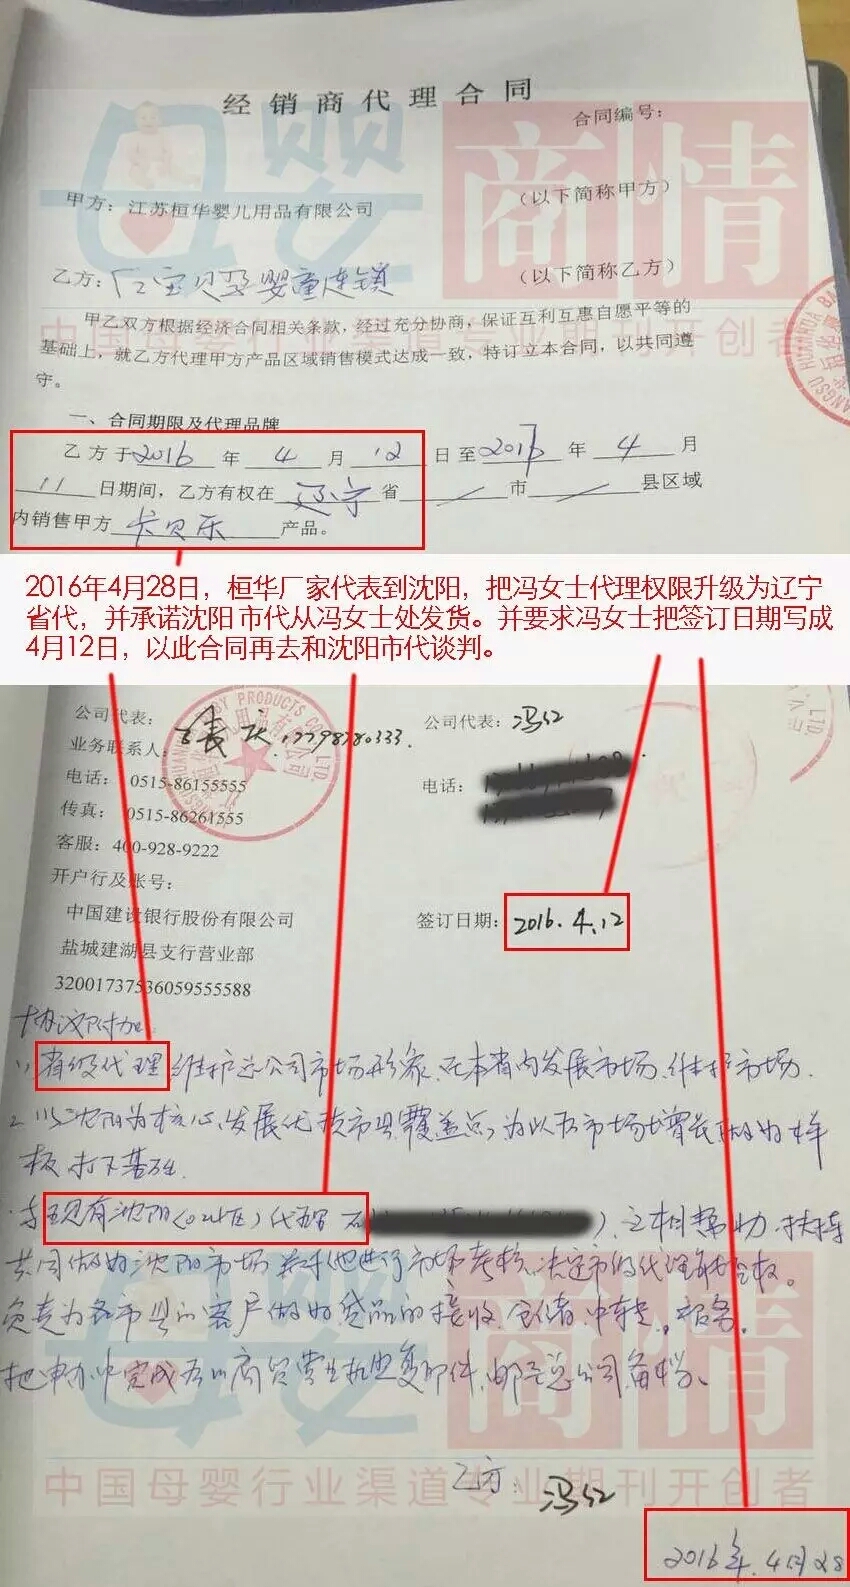 经销商代理合同
合同编号：
甲方：江苏桓华婴儿用品有限公司
（以下简称甲方）
乙方：仁宝贝孕婴童连锁
（以下简称乙方）
甲乙双方根据经济合同相关条款，经过充分协商，保证互利互惠自愿平等的
基础上，就乙方代理甲方产品区域销售模式达成一致，特订立本合同，以共同遵
守。
一、合同期限及代理品牌
乙方于2016年4月12日至2017年4月
11日期间，乙方有权在辽宁省／市／县区域
内销售甲方卡贝乐产品。
2016年4月28日，桓华厂家代表到沈阳，把冯女士代理权限升级为辽宁
省代，并承诺沈阳市代从冯女士处发货。并要求冯女士把签订日期写成
4月12日，以此合同再去和沈阳市代谈判。
公司代表：
公司代表：冯红
业务联系人：
电话：0515-86155555
电话：
传真：0515-86261555
客服：400-928-9222
开户行及账号：
签订日期：2016.4.12
中国建设银行股份有限公司
盐城建湖县支行营业部
32001737536059555588
协议附加
1、省级代理 维护总公司市场形象，在本省内发展市场，维护市场.
2 以沈阳为核心，发展优秀市县覆盖点，为以后市场增长做好样
板，打下基础.
现有沈阳(024区)代理 互相帮助，扶持
共同做好沈阳市场 并对他进行市场考核，决定市级代理
负责为各市县的客户做好货品的接收，仓储，中转，
把申办中完成后的商贸营业执照复印件，邮至总公司备档、
乙方：冯红
2016年.4月28
母婴商情
中国母婴行业渠道专业期刊开创者